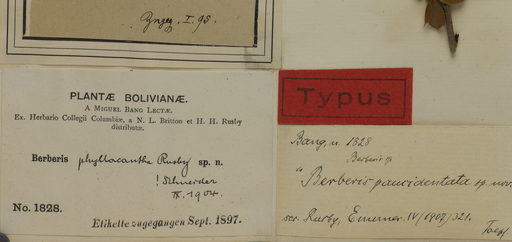 Yngeg. I. 95.
PLANTÆ BOLIVIANÆ.
A MIGUEL BANG LECTÆ.
Ex. Herbario Collegii Columbiæ, a N. L. Britton et H. H. Rusby
distributæ.
Berberis phyllacantha Rusby sp. n.
! Schneider
IX. 1904.
No. 1828.
Etikette zugegangen Sept. 1897.
Typus
Bang, n. 1828
Berberis
"Berberis paucidentata sp. nov.
scr. Rusby, IV (1907) 321.